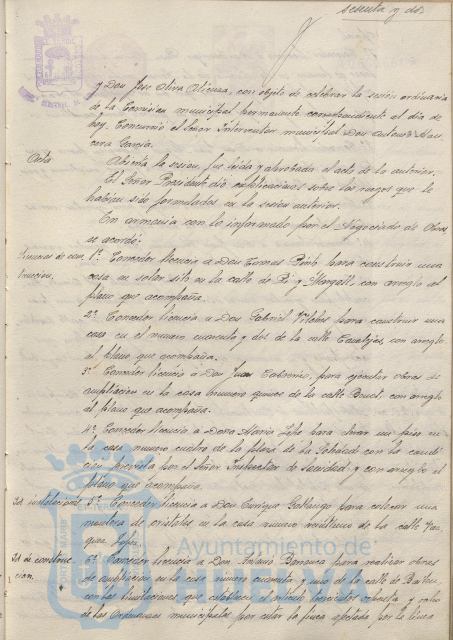 sesenta y dos
y Don Jose Oliva Atienza, con objeto de celebrar la sesión ordinaria
de la Comisión municipal permanente correspondiente al dia de
hoy. Concurrió el Señor Interventor municipal Don Antonio
García.
Acta
Abierta la sesión, fue leída y aprobada el acta de la anterior.
El Señor Presidente dio explicaciones sobre los ruegos que le
habian sido formulados en la sesión anterior.
En armonia con lo informado por el Negociado de Obras
se acordó:
Licencias de cons
trucción.
1º Conceder licencia a Don Tomas para construir una
casa en solar sito en la calle de Pi y Margall, con arreglo al
plano que acompaña.
2º Conceder licencia a Don Gabriel Vilches para construir una
casa en el numero cuarenta y dos de la calle Canalejas, con arreglo
al plano que acompaña.
3º Conceder licencia a Don Juan para ejecutar obras de
ampliación en la casa numero quince de la calle con arreglo
al plano que acompaña.
4º Conceder licencia a Dona Maria para elevar un piso en
la casa numero cuatro de la plaza de la con la condi
ción prevista por el Señor Inspector de Sanidad y con arreglo al
plano que acompaña.
Id. instalaciones
5º Conceder licencia a Don Enrique Gallango para colocar una
montera de cristales en la casa numero veintiuno de la calle
Id. de construc
ción.
6º Conceder licencia a Don para realizar obras
de ampliación en la casa numero cuarenta y uno de la calle de Bailen,
con las limitaciones que establece el articulo trescientos ochenta y ocho
de las Ordenanzas municipales por estar la finca afectada por la linea
Ayuntamiento de